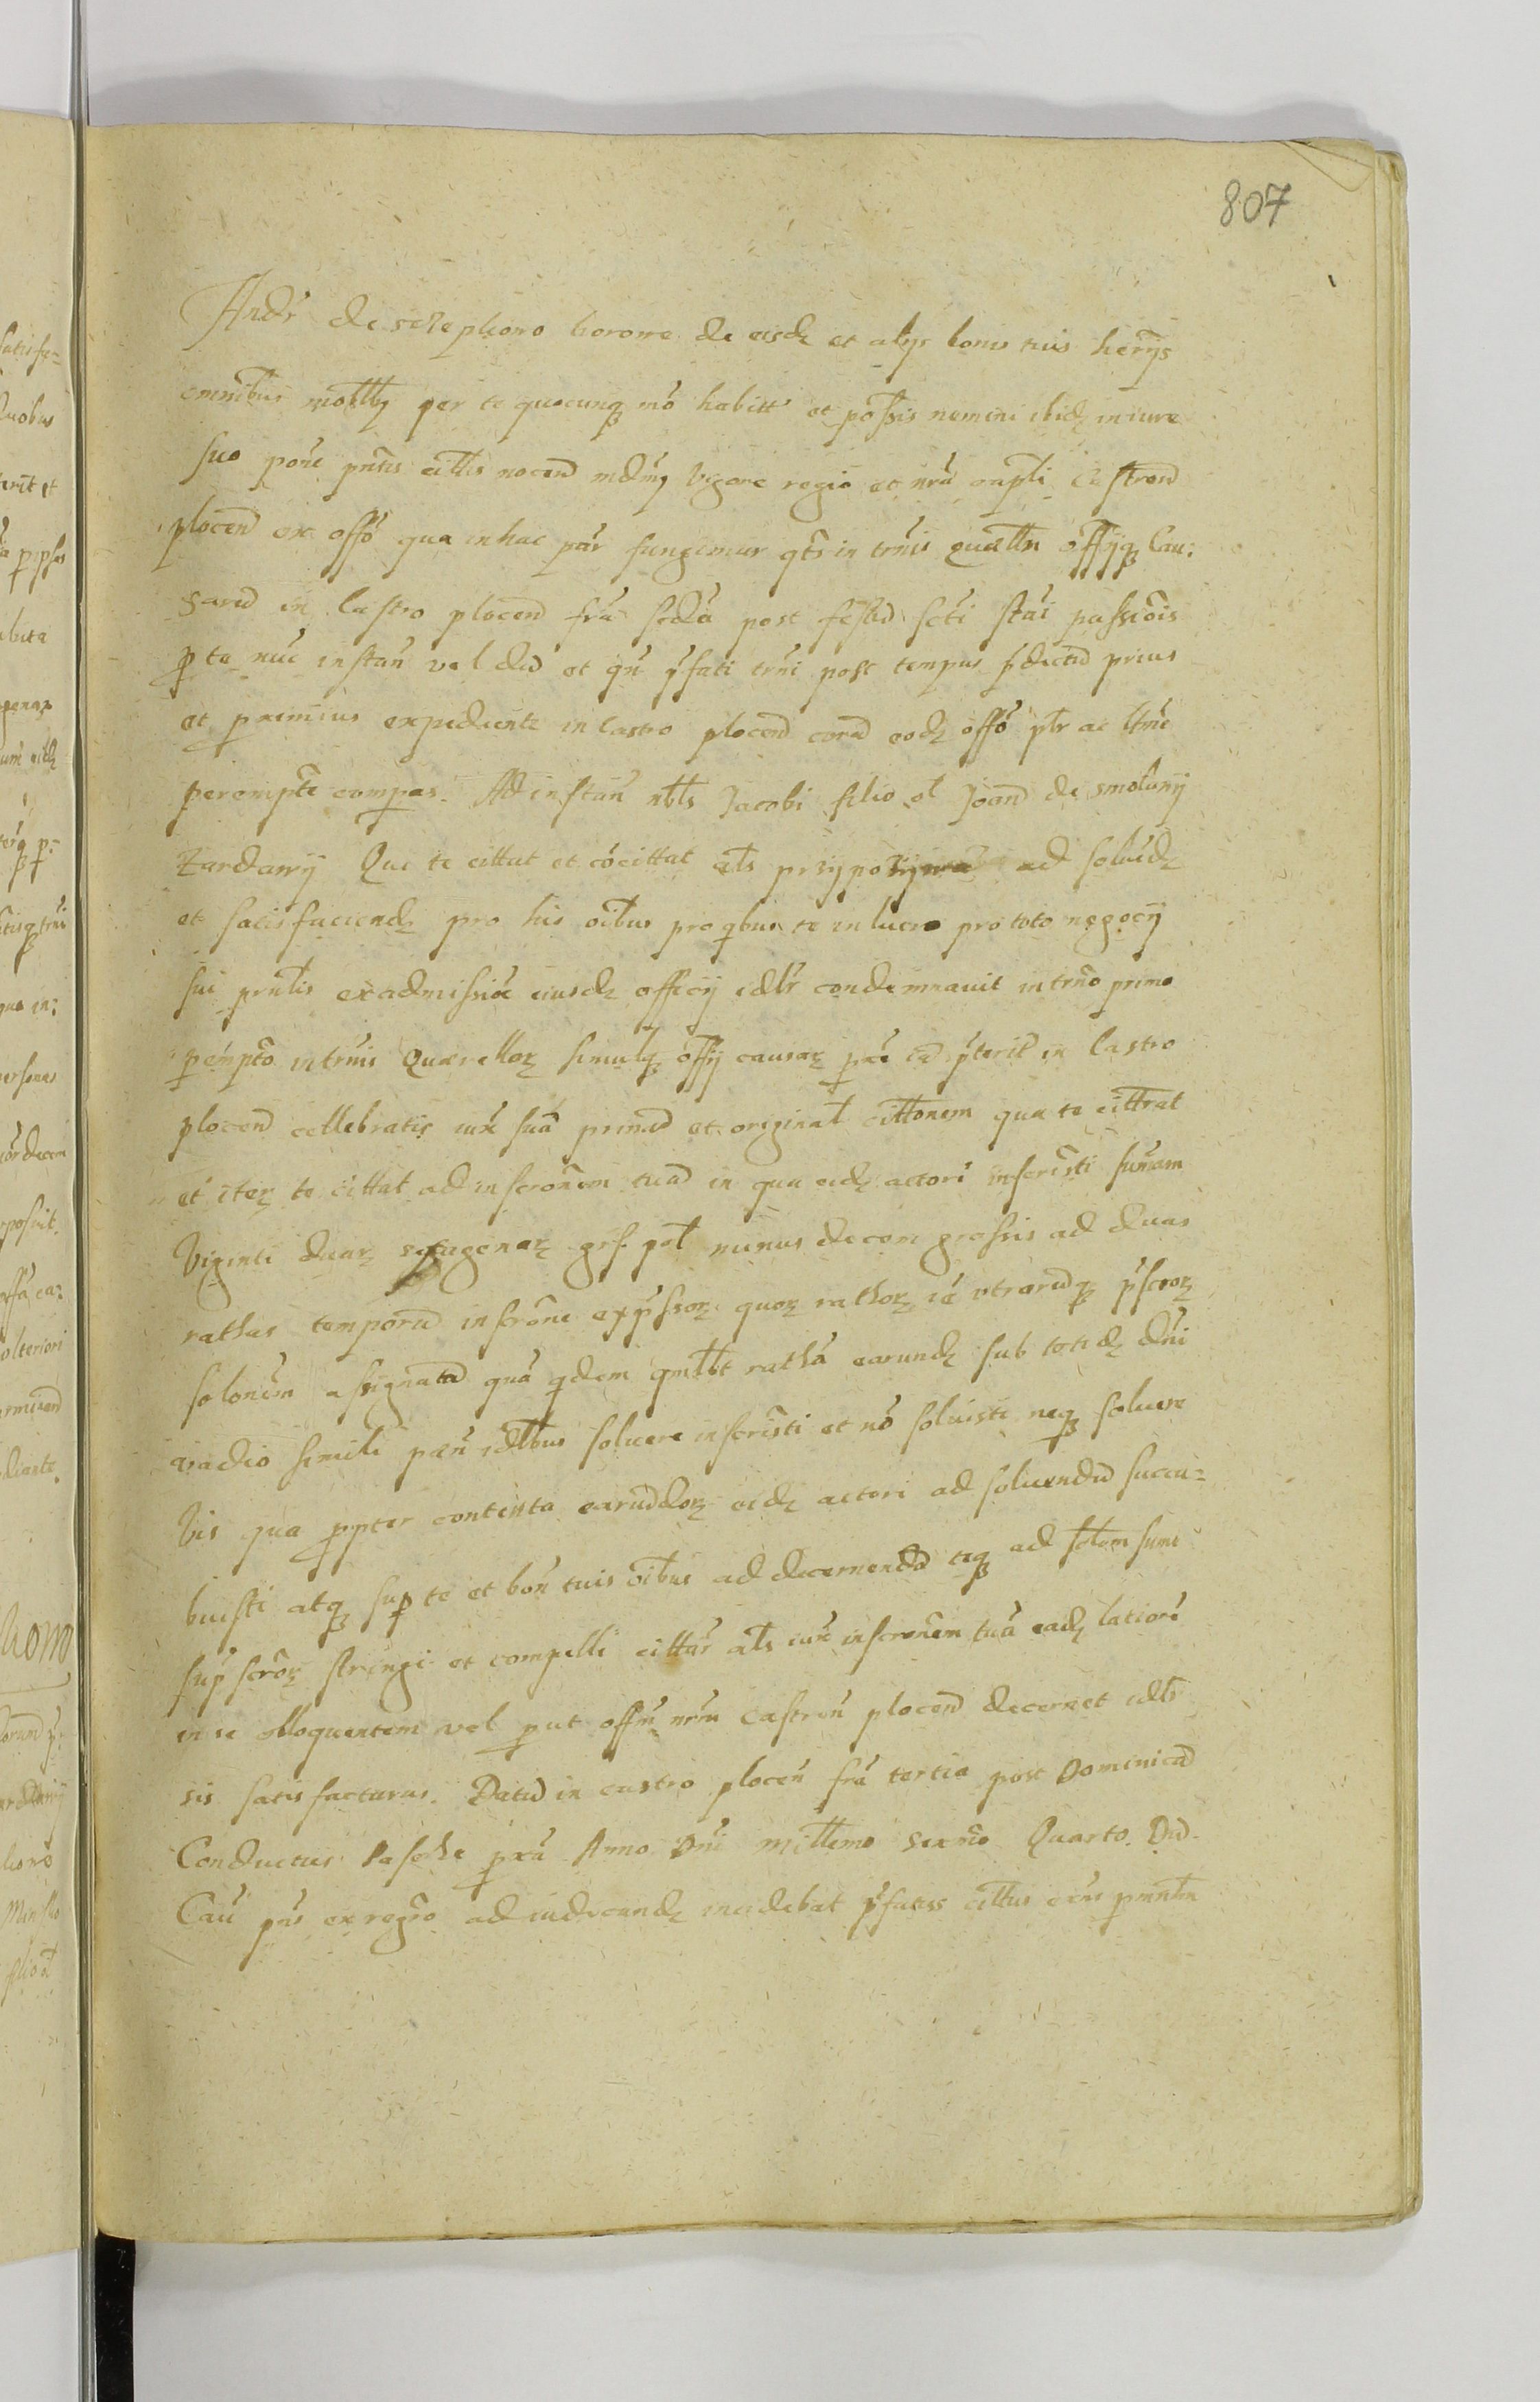 807
Andr̃ de sczephono borowe de eisdꝫ et alijs bonis tuis herijs
omnibus mobilibꝫ per te quocunqꝫ mõ habitt et possis nemini ibidꝫ in iure
suo põne pntis cittis nocend mdmꝫ Vigore regiõ et nrã capli Castrend
plocend ex offõ qua in hac par fungimur qts in trnis quællr offijqꝫ Cau:
sarũ in Castro plocend frã scda post festũ scti stãi passiõis
p te nũc instañ vel dũ et qñ pfati trni post tempus pdictũ prius
et pximius expedient in castro plocend corã eodꝫ offõ pltr ac ltme
perempte compas. Ad instañ nbls Jacobi filio ol Joand de smoluny
Zardawij Qui te cittat et cõcittat als przypozywa ad soluẽdꝫ
et satisfaciendꝫ pro his oĩbus pro qbus te in lucro pro toto negocij
sui pnlis ex admissiõe eiusdꝫ officij idlr condemnauit in trno primo
pempto in trnis Quærellorꝫ simulqꝫ offij causarꝫ pxe iã pterit in Castro
plocend cellebratis iux suã primã et original cittonem qua te cittrat
et iterꝫ te cittat ad inscronem tuã in qua eidꝫ actori inscristi sumam
Viginti duarꝫ sexagenarꝫ grs. pol minus decem grossis ad duas
rathas temporũ inscrõne expssorꝫ quorꝫ rathorꝫ iã utrarũqꝫ pscrorꝫ
solonem assignatã quã qdem qmlbt rathã earundꝫ sub totidꝫ dñi
vadio simili pæn idlbus soluere inscristi et nõ soluisti neqꝫ soluere
Vis qua ppter contenta earũddorꝫ eidꝫ actori ad soluendũ succu=
buisti atqꝫ sup te et boñ tuis oĩbus ad decernendũ teqꝫ ad solem sume
sup scrorꝫ stringi et compelli cittar als iux inscronem tuã eadꝫ latiori
in se olloquentem vel put offm nrm castren plocend decernet idlr
sis satisfacturus. Datũ in castro plocen frã tertia post Dominicã
Conductus Pasche pxã Anno Dñi millemo sexmo Quarto. Dũ.
Cau pns ex regro ad iudicandꝫ incidebat pfatss cittus eiũs pmntlin